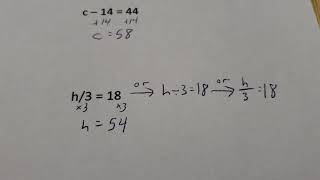 c – 14 = 44
+14 +14
c = 58
h/3 = 18 or → h÷3=18 or → h/3 = 18
×3 ×3
h = 54